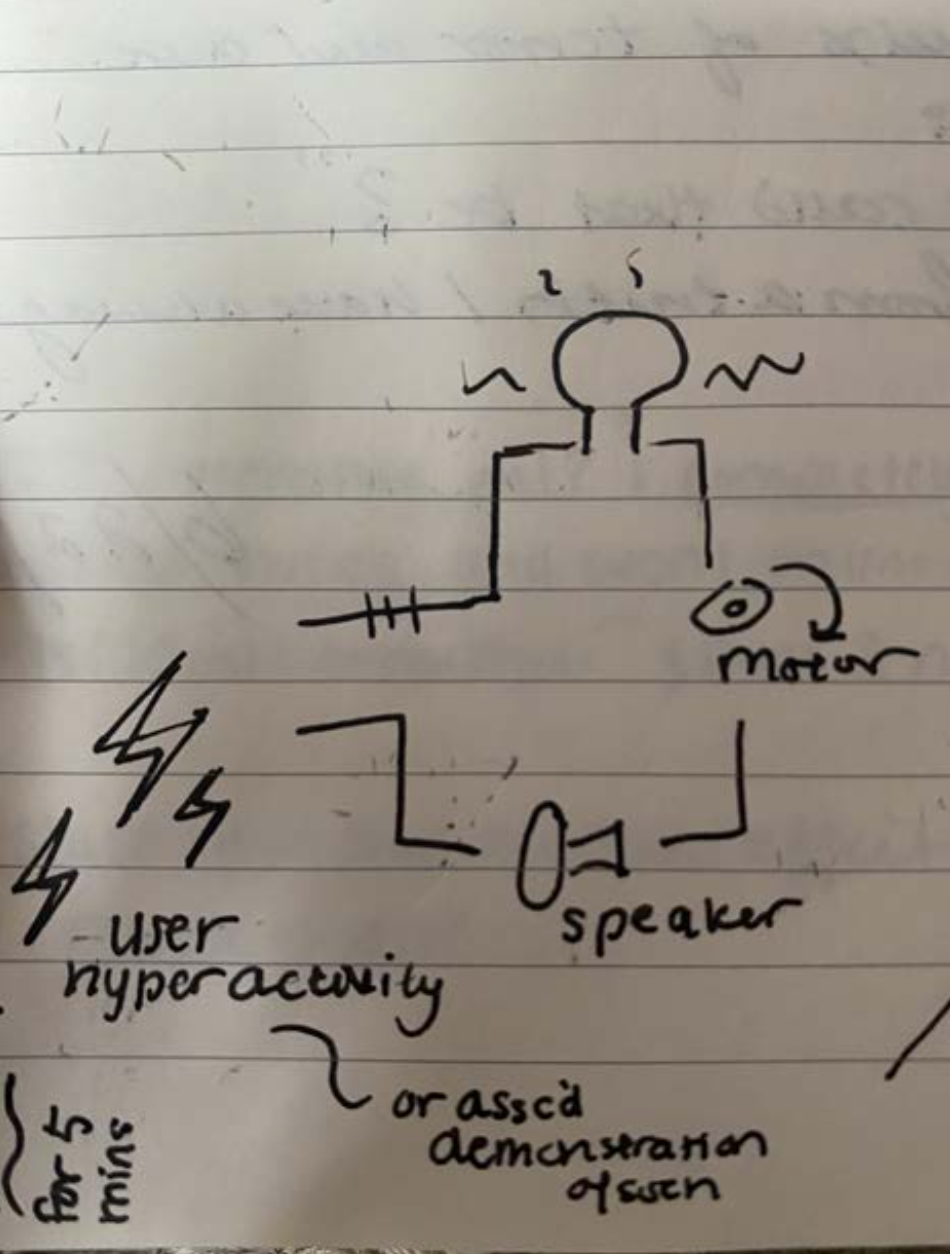 motor
speaker
user
hyperactivity
or assc'd
demonstration
of such
for 5
mins